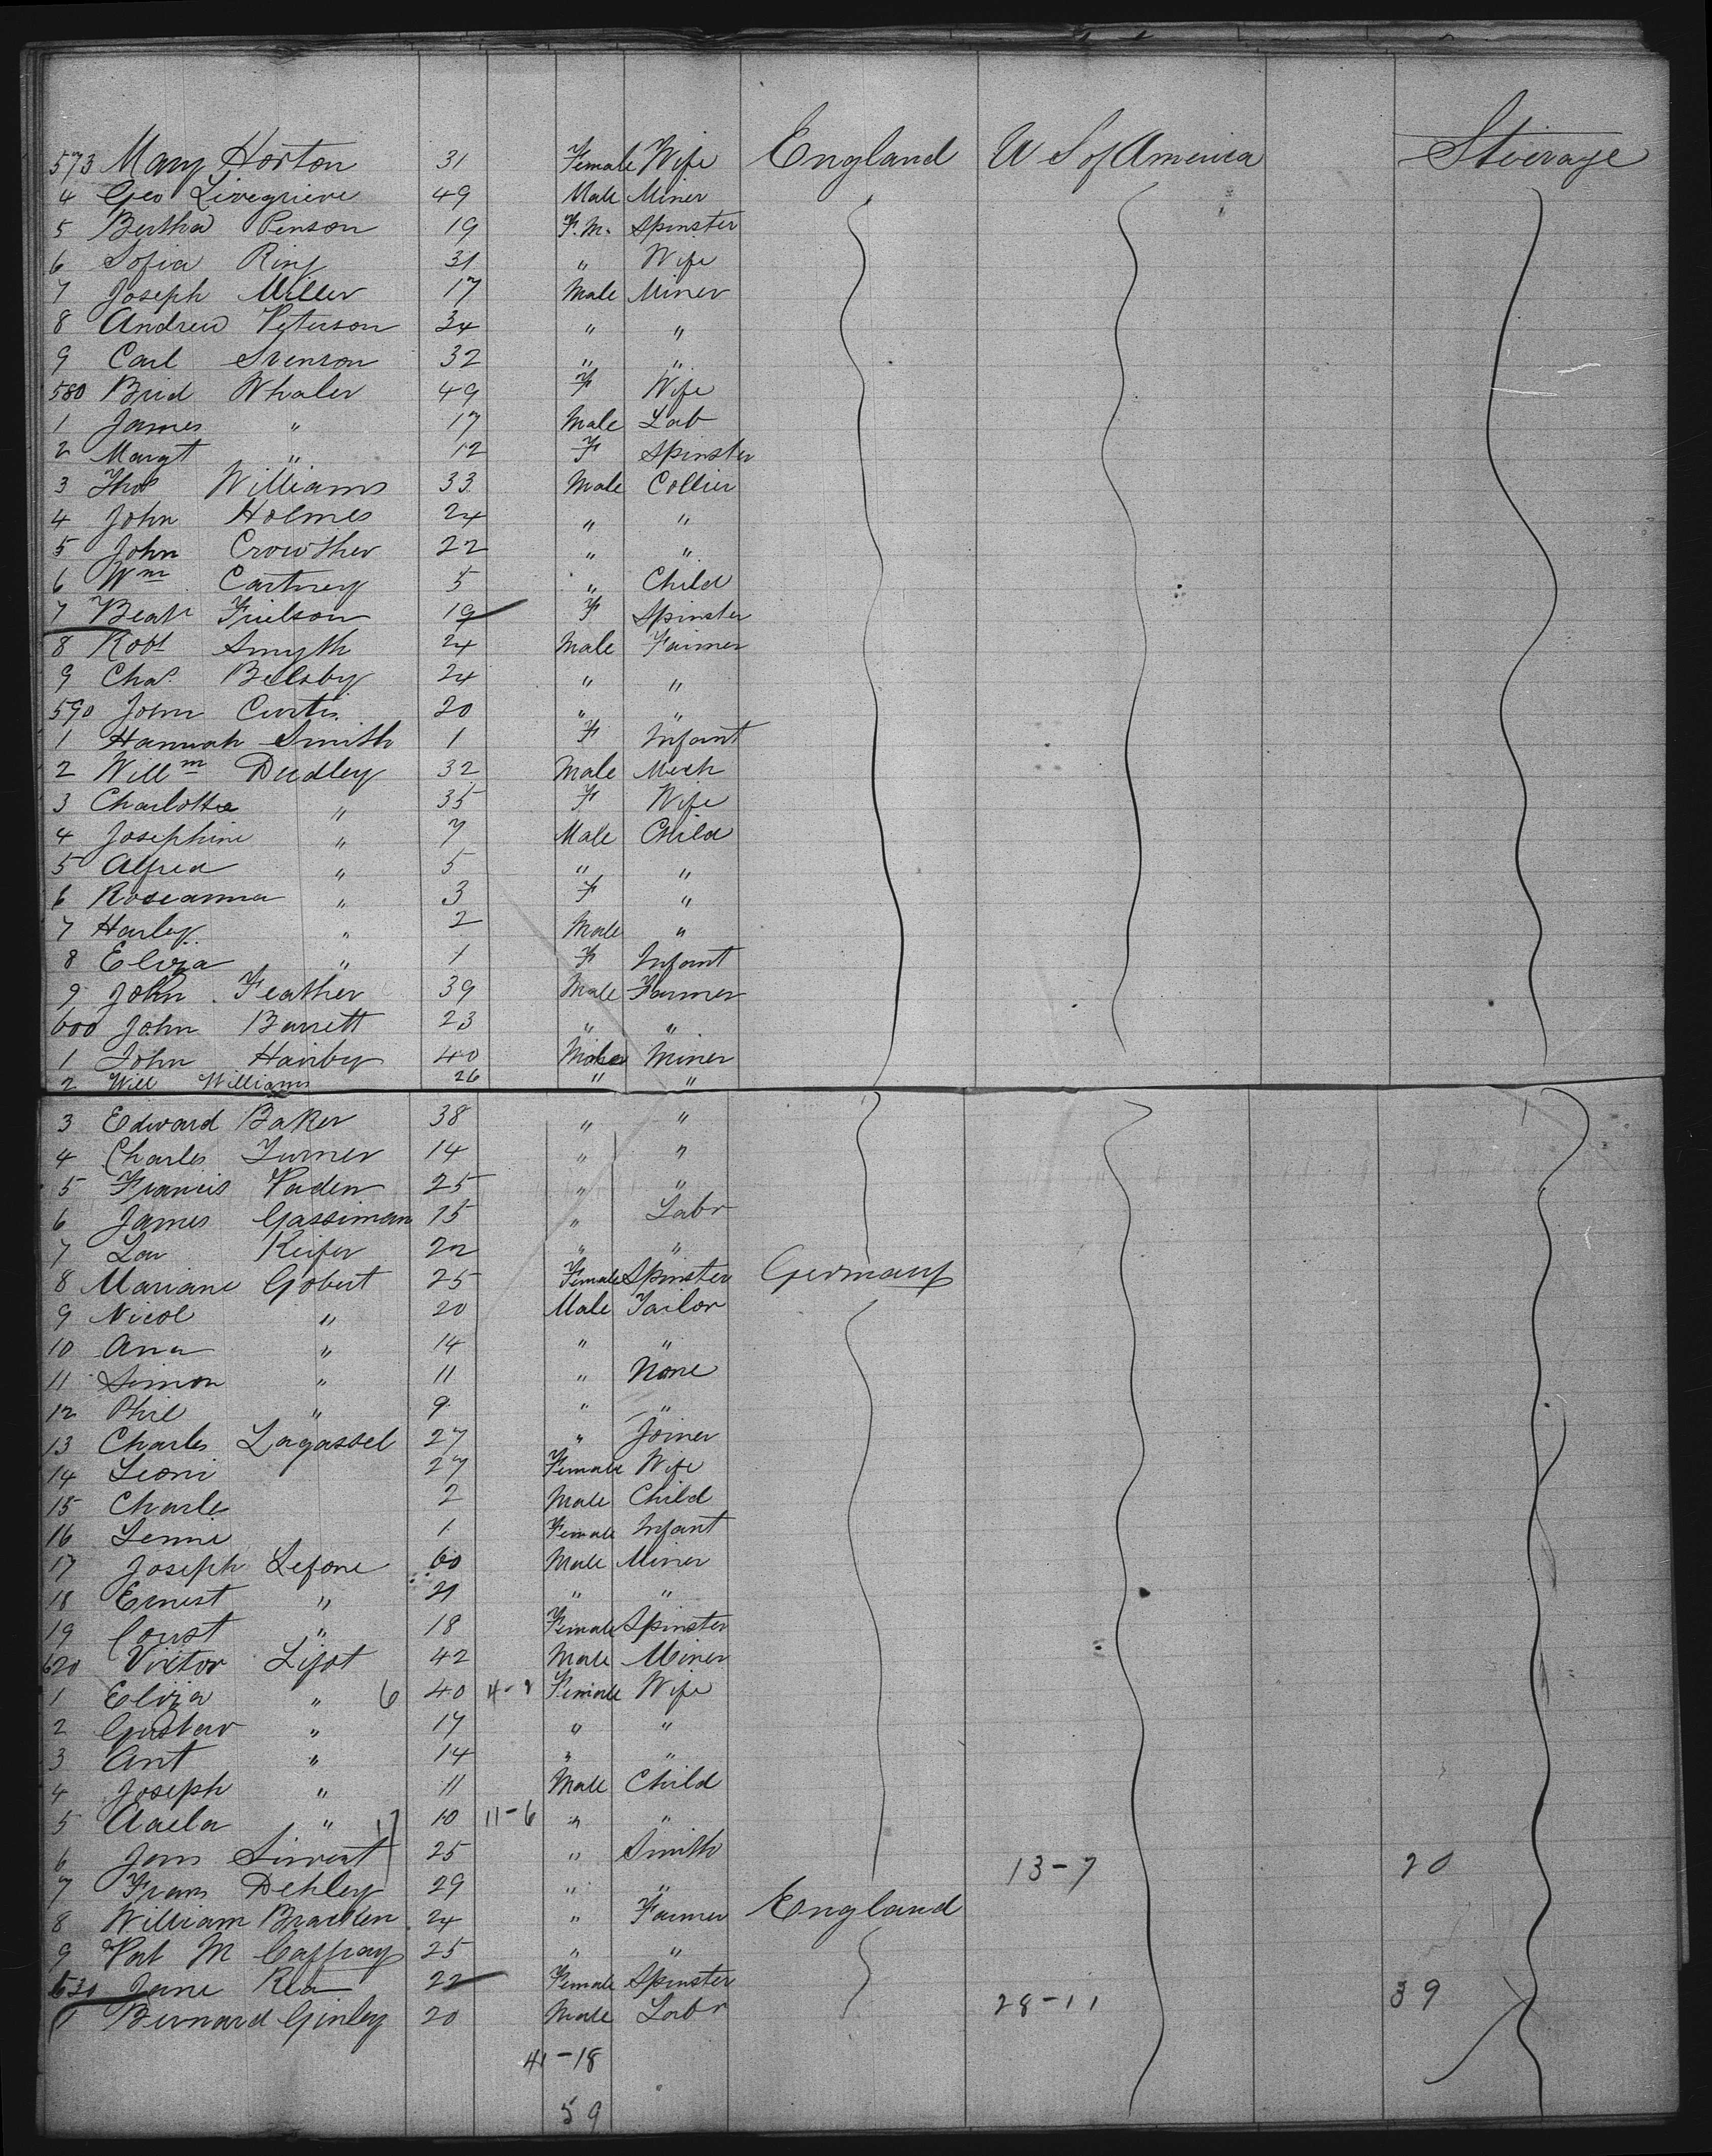 573 Mary Horton 31 Female Wife England U S of America Steerage
4 Geo Livegrieve 49 Male Miner
5 Bertha Penson 19 F.M. Spinster
6 Sofia Ring 31 " Wife
7 Joseph Miller 17 Male Miner
8 Andrew Peterson 34 " "
9 Carl Svenson 32 " "
580 Brid Whaler 49 F Wife
1 James " 17 Male Lab
2 Margt " 12 F Spinster
3 Thos Williams 33 Male Collier
4 John Holmes 24 " "
5 John Crowther 22 " "
6 Wm Cartney 5 " Child
7 Beatr Frielson 19 F Spinster
8 Robt Smyth 24 Male Farmer
9 Chas. Belsby 24 " "
590 John Curtis 20 " "
1 Hannah Smith 1 F Infant
2 Willm Dudley 32 Male Mech
3 Charlotte " 35 F Wife
4 Josephine " 7 Male Child
5 Alfred " 5 " "
6 Roseanna " 3 F "
7 Harley " 2 Male "
8 Eliza " 1 F Infant
9 John Feather 39 Male Farmer
600 John Barrett 23 " "
1 John Hairby 40 Miner
2 Will Williams 26 " "
3 Edward Baker 38 " "
4 Charles Turner 14 " "
5 Francis Vaden 25 " "
6 James Gassiman 15 " Labr
7 Lou Keifer 22 " "
8 Mariane Gobert 25 Female Spinster Germany
9 Nicol " 20 Male Tailor
10 Ana " 14 " "
11 Simon " 11 " None
12 Phil " 9 " "
13 Charles Lagassel 27 " Joiner
14 Leoni 27 Female Wife
15 Charle 2 Male Child
16 Lenne 1 Female Infant
17 Joseph Lefone 60 Male Miner
18 Ernest " 21 " "
19 Const " 18 Female Spinster
620 Victor Lijot 42 Male Miner
1 Eliza " 6 40 Female Wife
2 Gustav " 17 " "
3 Ant " 14 " "
4 Joseph " 11 Male Child
5 Aaela " 10 11-6 " "
6 Jans Sirvent 25 " Smith 13-7 20
7 Frans Dehley 29 " "
8 William Bracken 24 " Farmer England
9 Pat McCaffray 25 " "
630 Jane Rea 22 Female Spinster
1 Bernard Ginley 20 Male Labr 28-11 39
41-18
59